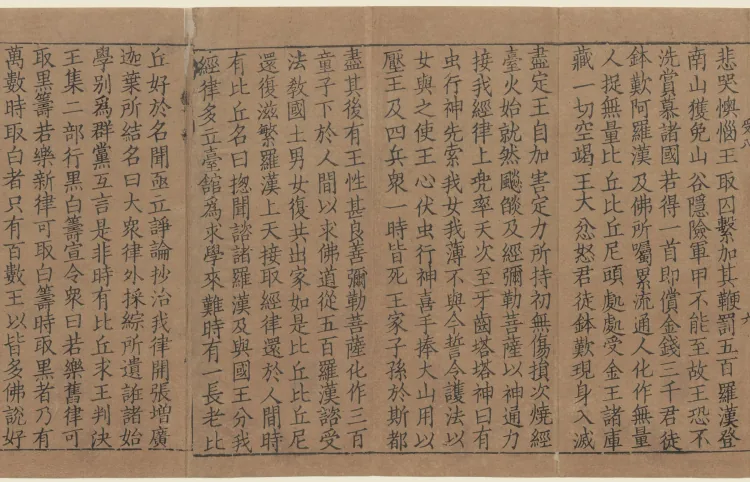 悲哭懊惱王取囚繫加其鞭罰五百羅漢登
南山獲免山谷隱險軍甲不能至故王恐不
洗賞慕諸國若得一首即償金錢三千君徒
鉢歎阿羅漢及佛所囑累流通人化作無量
人捉無量比丘比丘尼頭處處受金王諸庫
藏一切空竭王大忿怒君徒鉢歎現身入滅
盡定王自加害定力所持初無傷損次燒經
臺火始就然飈燄及經彌勒菩薩以神通力
接我經律上兜率天次至牙齒塔塔神曰有
虫行神先索我女我薄不與今誓令護法以
女與之使王心伏虫行神喜手捧大山用以
壓王及四兵衆一時皆死王家子孫於斯都
盡其後有王性甚良善彌勒菩薩化作三百
童子下於人間以求佛道從五百羅漢諮受
法教國土男女復共出家如是比丘比丘尼
還復滋繁羅漢上天接取經律還於人間時
有比丘名曰揔聞諮諸羅漢及與國王分我
經律多立臺館爲求學來難時有一長老比
丘好於名聞亟立諍論抄治我律開張增廣
迦葉所結名曰大衆律外採綜所遺誑諸始
學別爲群黨互言是非時有比丘求王判決
王集二部行黑白籌宣令衆曰若樂舊律可
取黑籌若樂新律可取白籌時取黑者乃有
萬數時取白者只有百數王以皆多佛說好